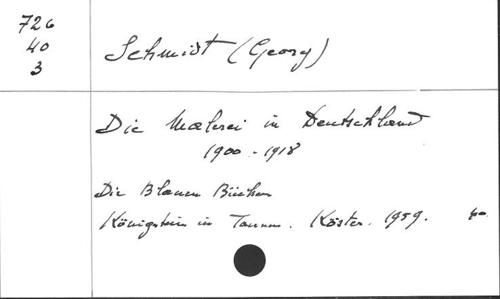 726
40
3
Schmidt (Georg)
Die Malerei in Deutschland
1900 - 1918
Die Blauen Bücher
Königstein im Taunus. Köster. 1959.